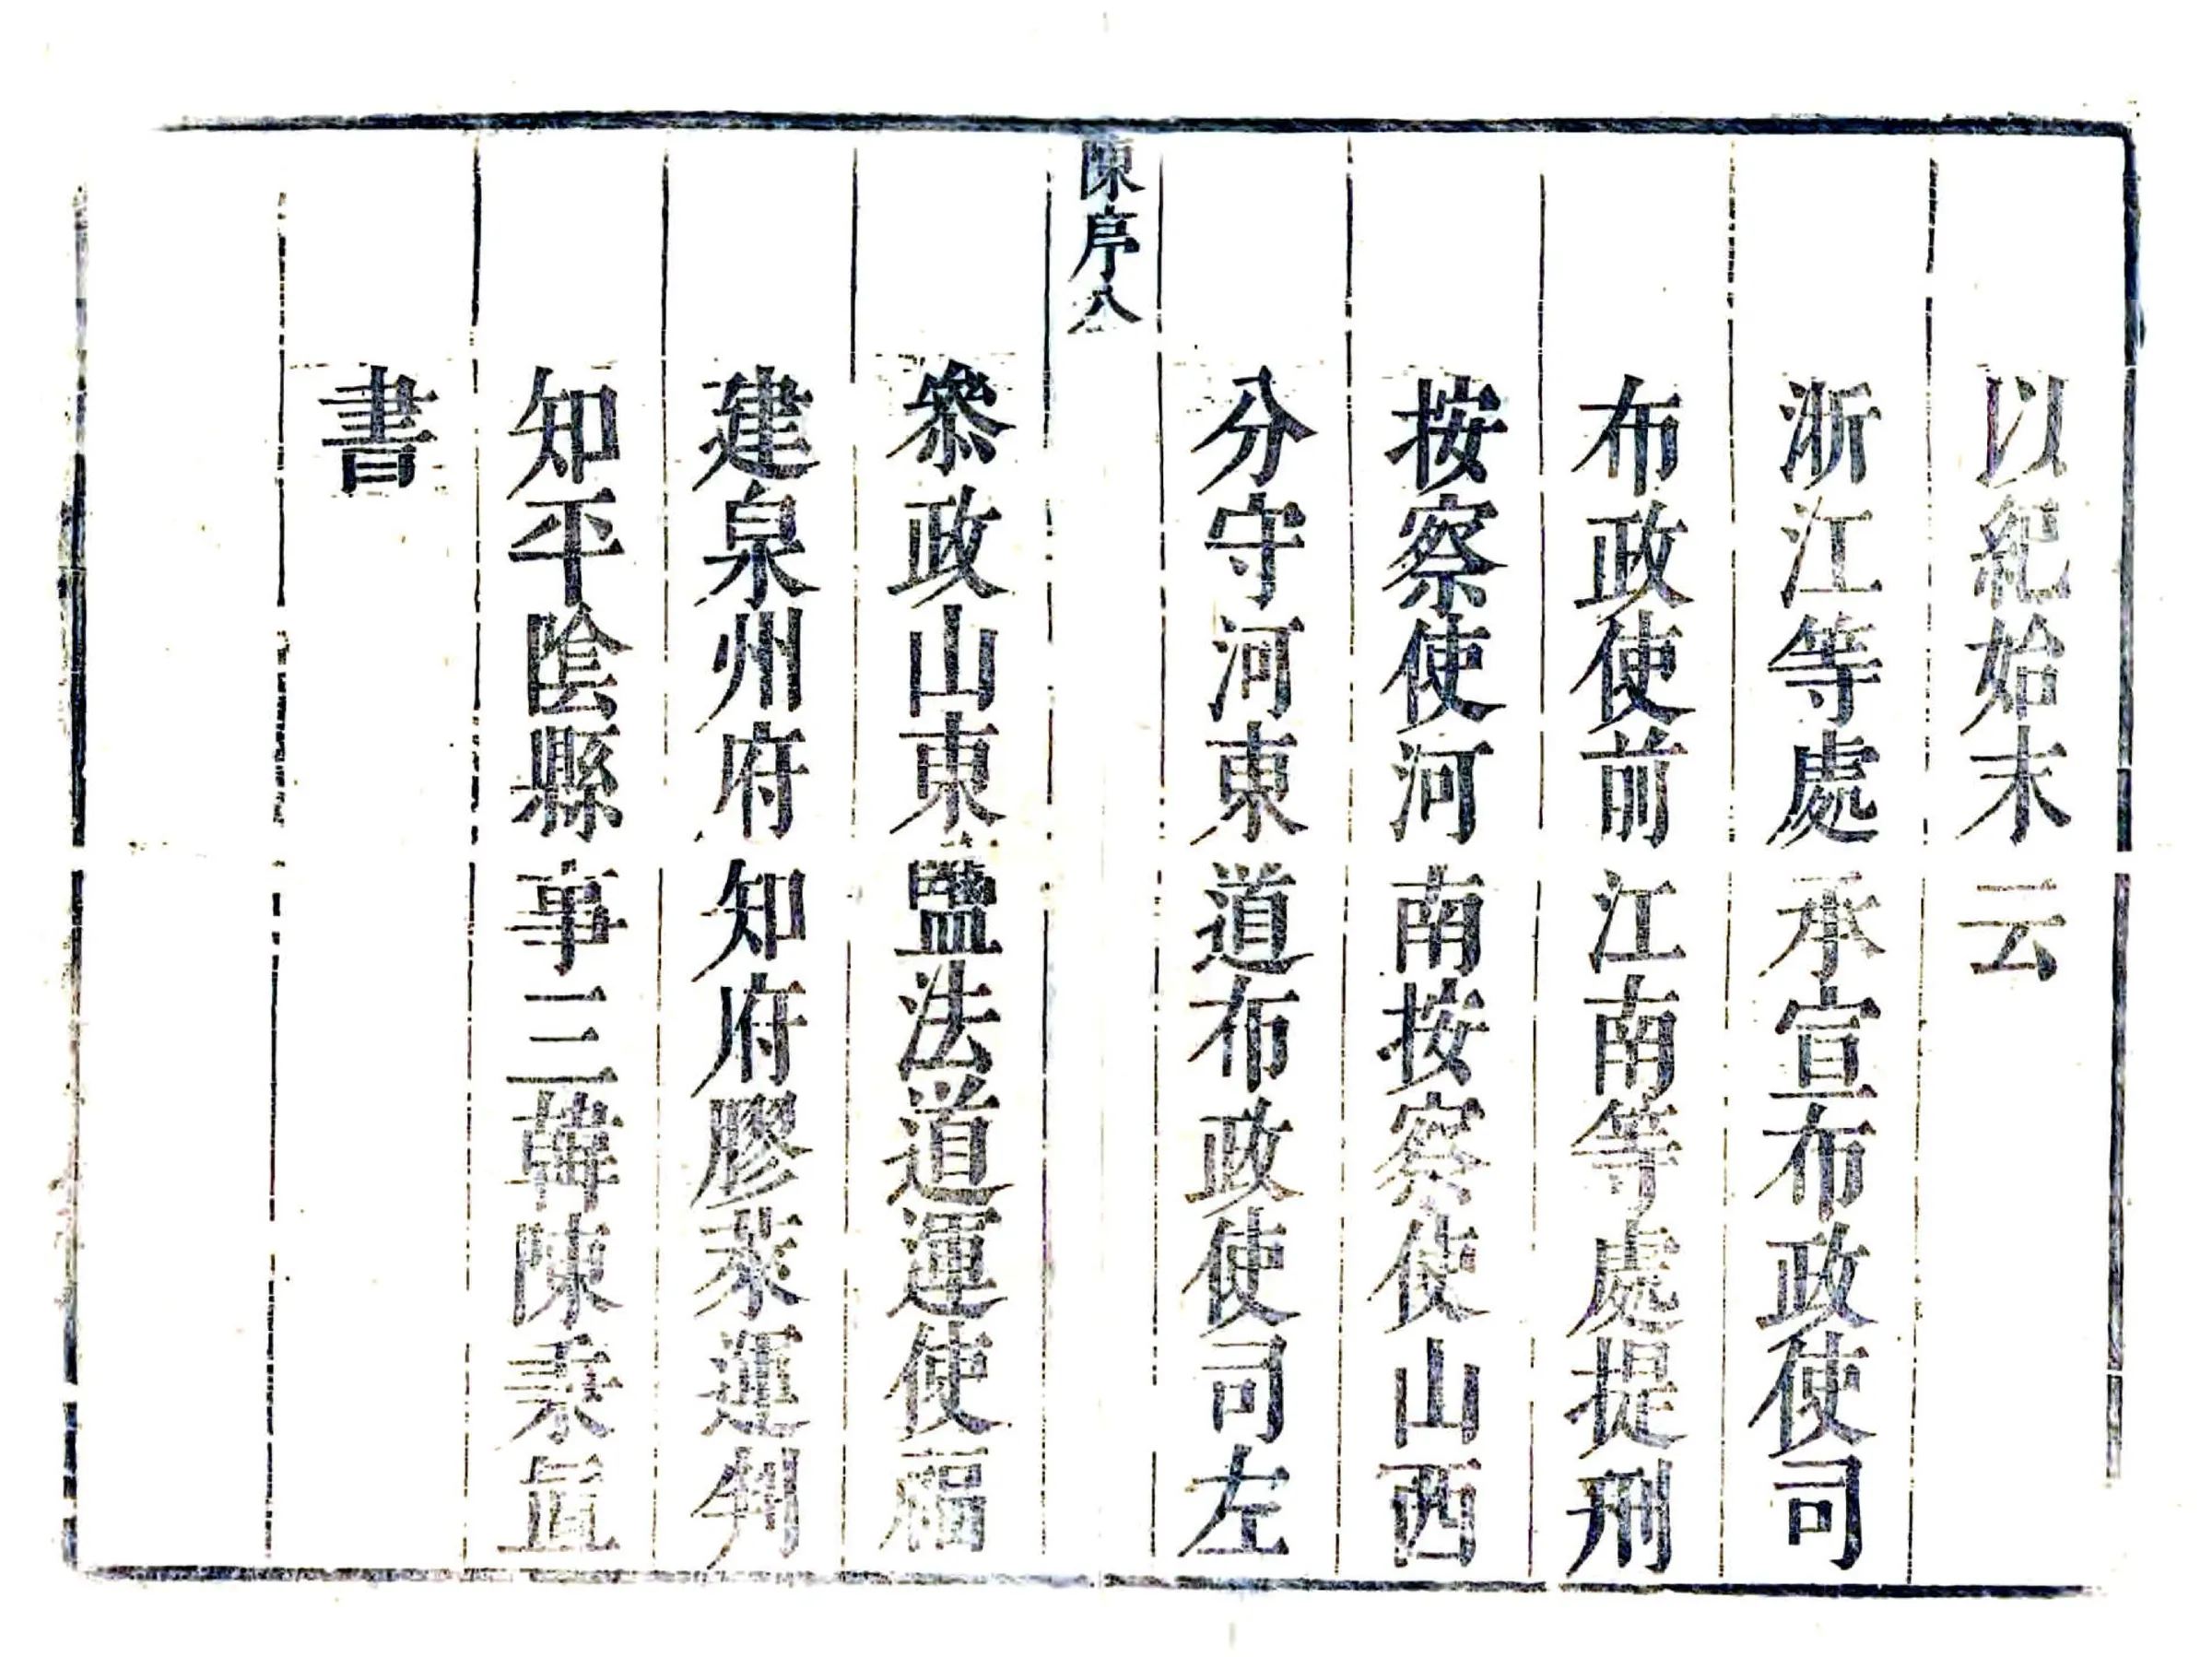 以紀始末云
浙江等處承宣布政使司
布政使前江南等處提刑
按察使河南按察使山西
分守河東道布政使司左
陳序八
叅政山東鹽法道運使福
建泉州府知府膠萊運判
知平陰縣事三韓陳秉直
書